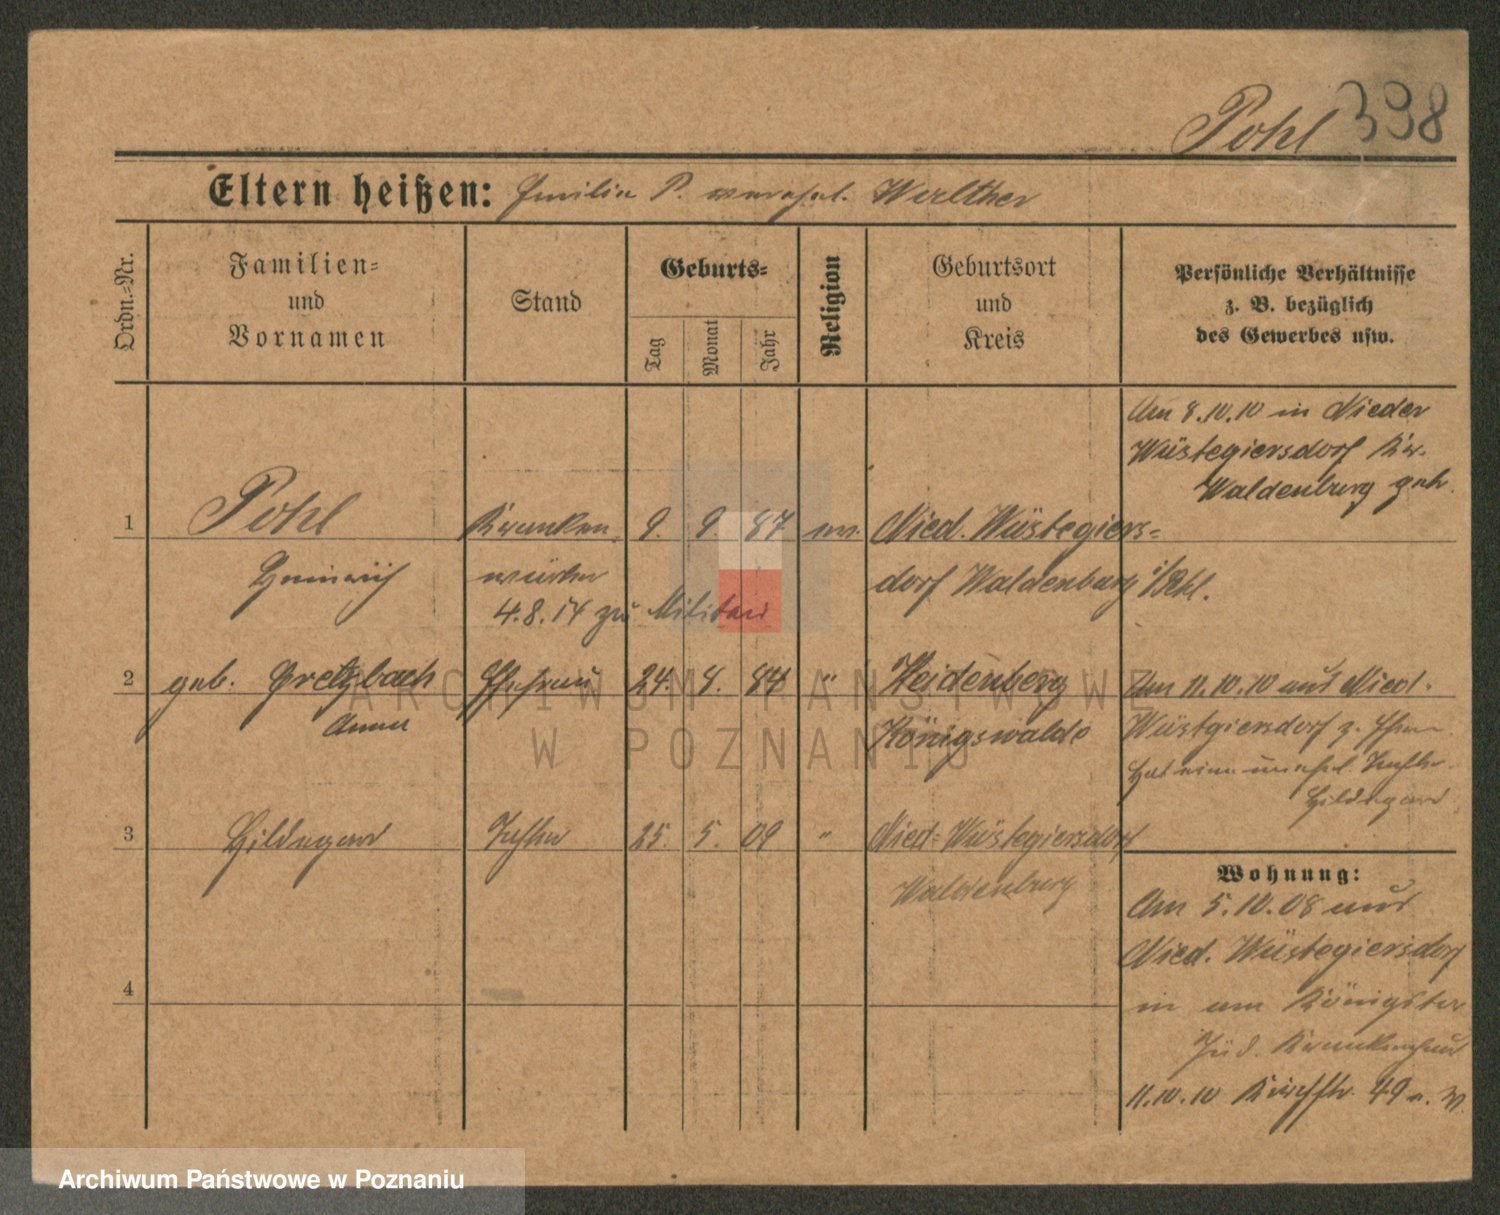 Pohl 398
Eltern heißen: Emilie P. verehel. Werlther
Ordn.-Nr.
Familien-
und
Vornamen
Stand
Geburts-
Tag
Monat
Jahr
Religion
Geburtsort
und
Kreis
Persönliche Verhältnisse
z. B. bezüglich
des Gewerbes usw.
Am 8.10.10 in Nieder
Wüstegiersdorf Kr.
Waldenburg geh.
1 Pohl Kranken- 9. 9. 87 ev. Nied. Wüstegiers-
Heinrich wärter dorf Waldenburg i/Schl.
4.8.14 zu Militär
2 geb. Gretzbach Ehefrau 24. 8. 84 " Heidenberg Am 11.10.10 aus Nied.
Anna Königswalde Wüstgiersdorf z. Ehem.
Hat eine unehel. Tochter
Hildegard
3 Hildegard Tochter 25. 5. 09 " Nied-Wüstegiersdorf
Waldenburg
Wohnung:
Am 5.10.08 aus
Nied. Wüstegiersdorf
4
in am Königstor
Jüd. Krankenhaus
11.10.10 Kirchstr. 49 a. W.
ARCHIWUM PAŃSTWOWE
W POZNANIU
Archiwum Państwowe w Poznaniu